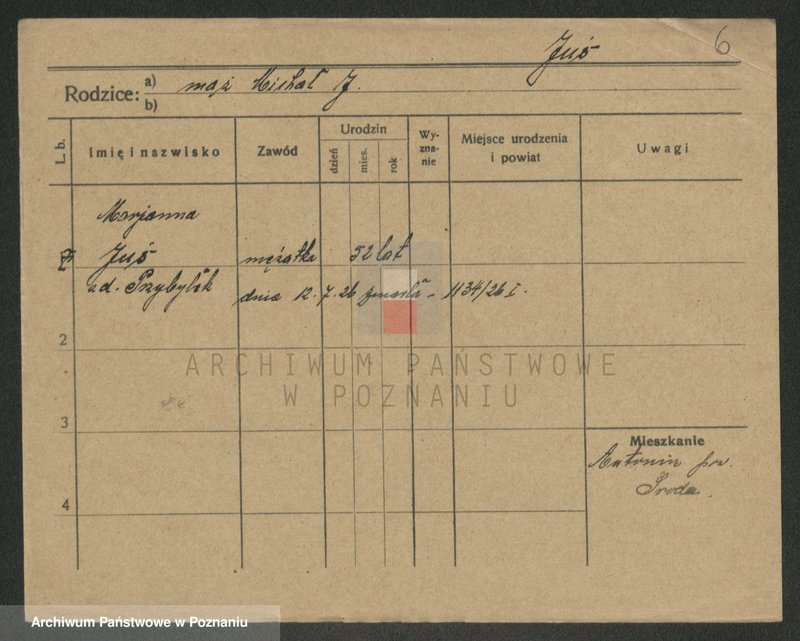 6
Juś
Rodzice: a) mąż Michał J.
b)
L. b.
Imię i nazwisko
Zawód
Urodzin
dzień
mies.
rok
Wy-
zna-
nie
Miejsce urodzenia
i powiat
Uwagi
Marjanna
Juś mężatka 52 lat
zd. Przybylak dnia 12.7.26 zmarła - 1134/26 I.
2
ARCHIWUM PAŃSTWOWE
W POZNANIU
3
Mieszkanie
Antonin pow.
Środa.
4
Archiwum Państwowe w Poznaniu